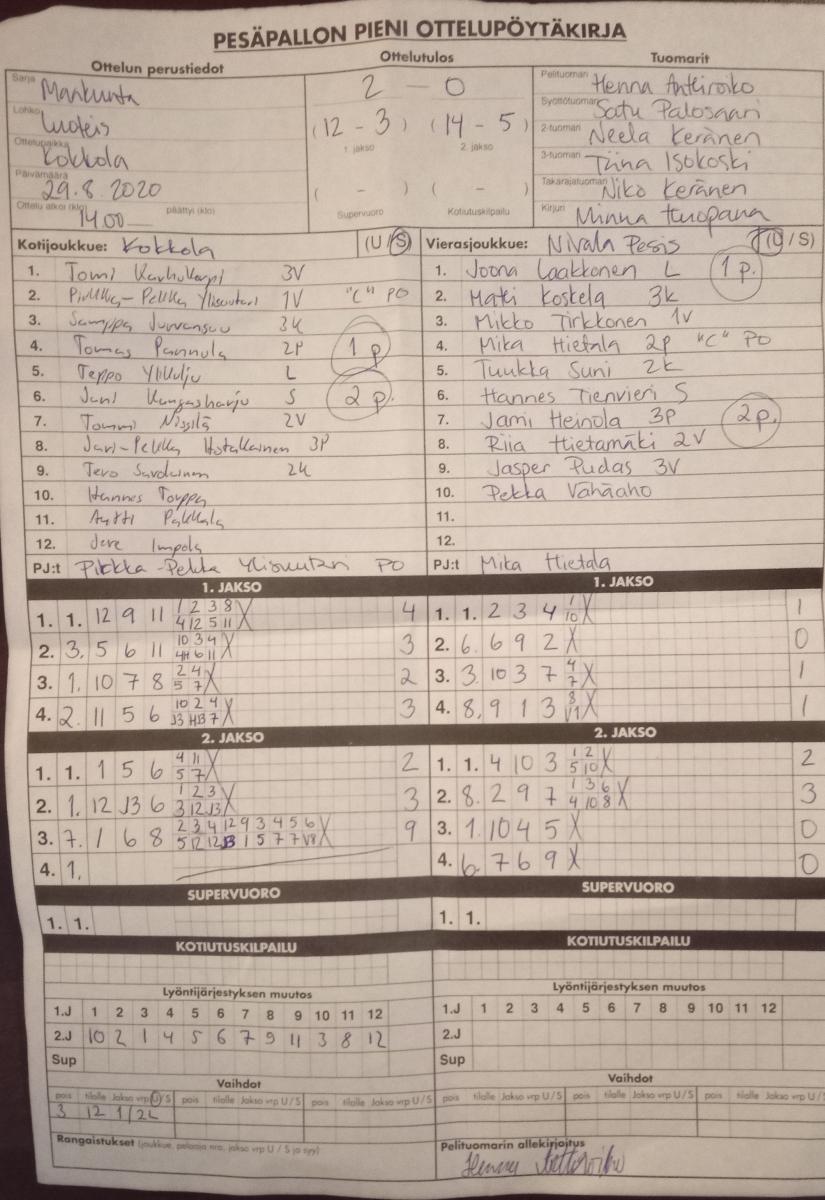 PESÄPALLON PIENI OTTELUPÖYTÄKIRJA
Ottelun perustiedot Ottelutulos Tuomarit
Sarja Maakunta 2 - 0 Pelituomari Henna Anttiroiko
Lohko Luoteis (12 - 3) (14 - 5) Syöttötuomari Satu Palosaari
1. jakso 2. jakso
Ottelupaikka Kokkola 2-tuomari Neela Keränen
Päivämäärä 29.8.2020 3-tuomari Tiina Isokoski
( - ) ( - ) Takarajatuomari Niko Keränen
Ottelu alkoi (klo) 14.00 päättyi (klo) Supervuoro Kotiutuskilpailu Kirjuri Minna Huopana
Kotijoukkue: Kokkola (U/S) Vierasjoukkue: Nivala Pesis (U/S)
1. Tomi 3V 1. Joona Laakkonen L 1 p.
2. Pirkka-Pekka Ylisuutari 1V "C" PO 2. Matti Koskela 3k
3. Samppa Juvansuu 3k 3. Mikko Tirkkonen 1v
4. Tomas Pannula 2P 1 p 4. Mika Hietala 2p "C" PO
5. Teppo L 5. Tuukka Suni 2k
6. Jani Kangasharju S 2 p. 6. Hannes Tienvieri S
7. Tommi Nissilä 2V 7. Jami Heinola 3P 2p.
8. Jari-Pekka Hotakainen 3P 8. Riia Hietamäki 2V
9. Tero Savolainen 2k 9. Jasper Pudas 3V
10. Hannes Torppa 10. Pekka Vähäaho
11. Antti Pakkala 11.
12. Jere Impola 12.
PJ:t Pirkka-Pekka Ylisuutari PO PJ:t Mika Hietala
1. JAKSO 1. JAKSO
1 2 3 8 1
1. 1. 12 9 11 4 12 5 11 X 4 1. 1. 2 3 4 10 X 1
10 3 4
2. 3. 5 6 11 6 11 X 3 2. 6. 6 9 2 X 0
2 4 4
3. 1. 10 7 8 5 7 X 2 3. 3. 10 3 7 7 X 1
10 2 4 8
4. 2. 11 5 6 J3 7 X 3 4. 8. 9 1 3 X 1
2. JAKSO 2. JAKSO
4 11 1 2
1. 1. 1 5 6 5 7 X 2 1. 1. 4 10 3 5 10 X 2
1 2 3 1 3 6
2. 1. 12 J3 6 3 12 J3 X 3 2. 8. 2 9 7 4 10 8 X 3
2 3 4 12 9 3 4 5 6
3. 7. 1 6 8 5 12 12 1 5 7 7 X 9 3. 1. 10 4 5 X 0
4. 1. 4. 6. 7 6 9 X 0
SUPERVUORO SUPERVUORO
1. 1. 1. 1.
KOTIUTUSKILPAILU KOTIUTUSKILPAILU
Lyöntijärjestyksen muutos Lyöntijärjestyksen muutos
1.J 1 2 3 4 5 6 7 8 9 10 11 12 1.J 1 2 3 4 5 6 7 8 9 10 11 12
2.J 10 2 1 4 5 6 7 9 11 3 8 12 2.J
Sup Sup
Vaihdot Vaihdot
pois tilalle Jakso vrp U/S pois tilalle Jakso vrp U/S pois tilalle Jakso vrp U/S pois tilalle Jakso vrp U/S pois tilalle Jakso vrp U/S pois tilalle Jakso vrp U/S
3 12 1/2L
Rangaistukset (joukkue, pelaaja nro, jakso vrp U / S ja syy) Pelituomarin allekirjoitus
Henna Anttiroiko